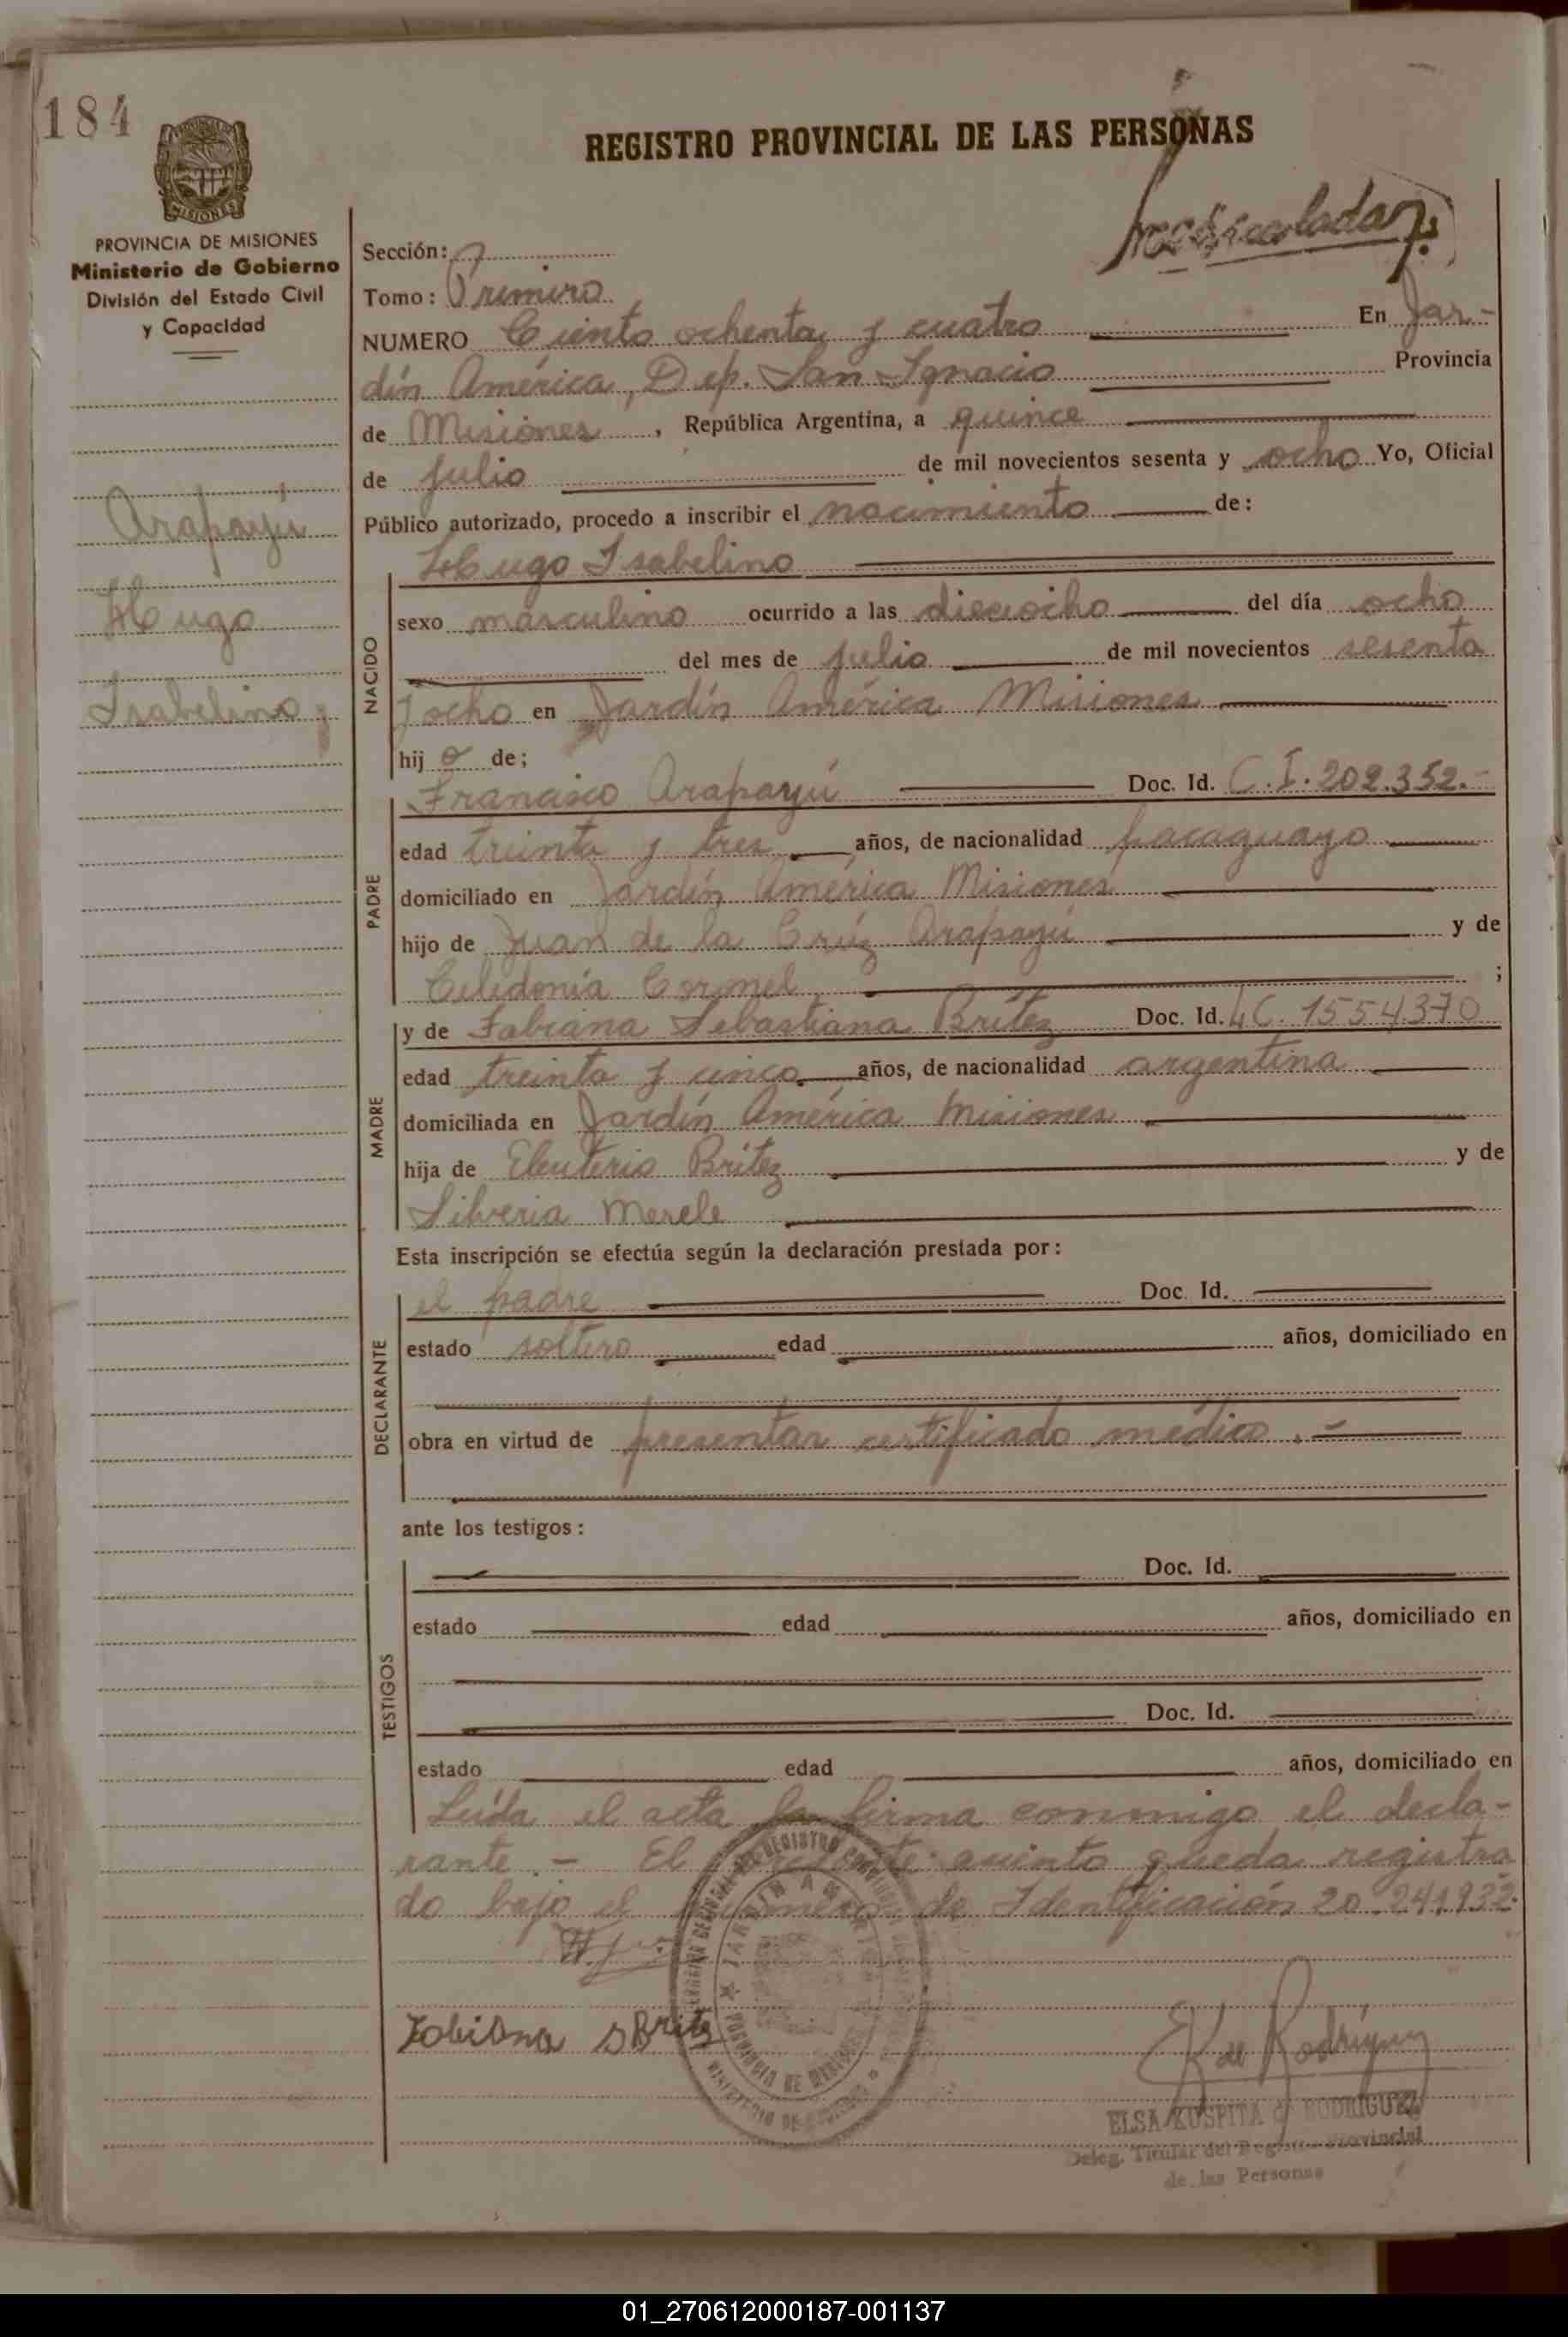 184
REGISTRO PROVINCIAL DE LAS PERSONAS
PROVINCIA DE MISIONES
Ministerio de Gobierno
División del Estado Civil
y Capacidad
Arapayú
Hugo
Isabelino
Sección:
Tomo: Primero
NUMERO Ciento ochenta y cuatro En Jar-
dín América, Dep. San Ignacio Provincia
de Misiones, República Argentina, a quince
de julio de mil novecientos sesenta y ocho Yo, Oficial
Público autorizado, procedo a inscribir el nacimiento de:
Hugo Isabelino
NACIDO
sexo masculino ocurrido a las dieciocho del día ocho
del mes de julio de mil novecientos sesenta
y ocho en Jardín América Misiones
hijo de;
PADRE
Francisco Arapayú Doc. Id. C.I. 202.352.-
edad treinta y tres años, de nacionalidad paraguayo
domiciliado en Jardín América Misiones
hijo de Juan de la Crúz Arapayú y de
Celedonia Coronel ;
MADRE
y de Fabiana Sebastiana Brítez Doc. Id. LC. 1554370
edad treinta y cinco años, de nacionalidad argentina
domiciliada en Jardín América Misiones
hija de Eleuterio Brítez y de
Silveria Merele
Esta inscripción se efectúa según la declaración prestada por:
DECLARANTE
el padre Doc. Id.
estado soltero edad años, domiciliado en
obra en virtud de presentar certificado médico.-
ante los testigos:
TESTIGOS
Doc. Id.
estado edad años, domiciliado en
Doc. Id.
estado edad años, domiciliado en
Leída el acta la firma conmigo el decla-
rante.- El presente asiento queda registra
do bajo el número de Identificación 20.241.932.
JARDIN AMERICA
PROVINCIA DE MISIONES
MINISTERIO DE GOBIERNO
Fabiana S Britez
E K de Rodríguez
ELSA KUSPITA de RODRIGUEZ
Deleg. Titular del Registro Provincial
de las Personas
01_270612000187-001137